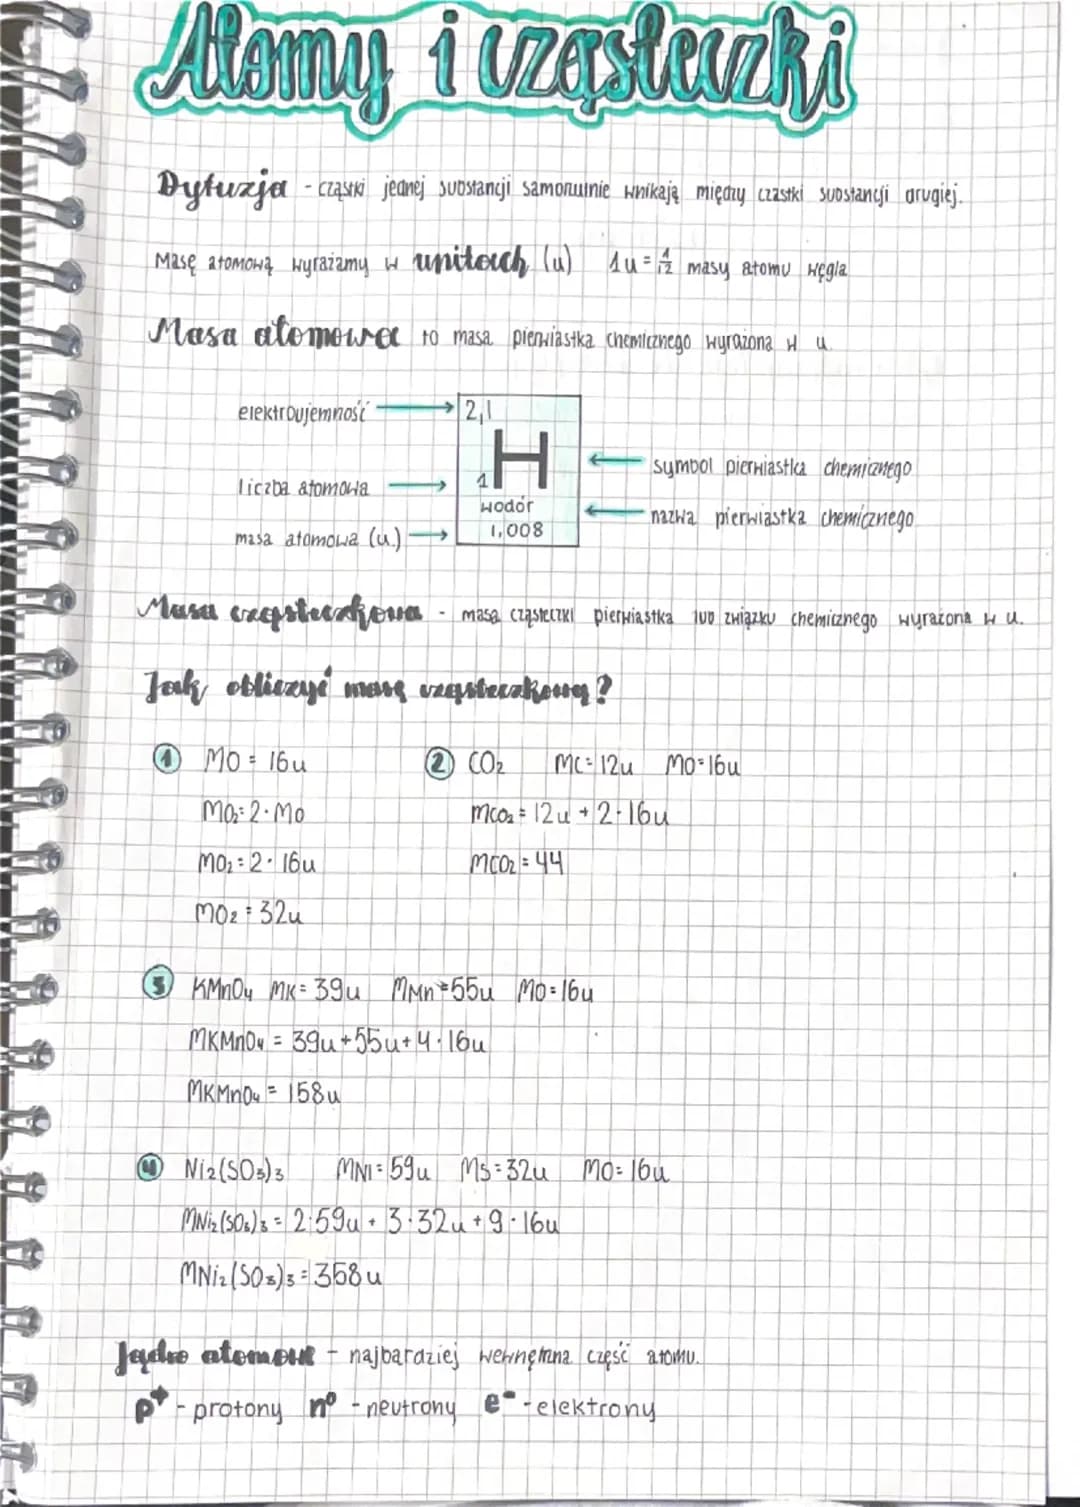 Atomy i cząsteczki
Dyfuzja - cząstki jednej substancji samorzutnie wnikają między cząstki substancji drugiej.
Masę atomową wyrażamy w unitach (u) 1u = 1/12 masy atomu węgla
Masa atomowa to masa pierwiastka chemicznego wyrażona w u.
elektroujemność → 2,1
H
← symbol pierwiastka chemicznego
liczba atomowa → 1
wodór
← nazwa pierwiastka chemicznego
masa atomowa (u.) → 1,008
Masa cząsteczkowa - masa cząsteczki pierwiastka lub związku chemicznego wyrażona w u.
Jak obliczyć masę cząsteczkową?
1 mO = 16u
mO₂ = 2 · mO
mO₂ = 2 · 16u
mO₂ = 32u
2 CO₂ mC = 12u mO = 16u
mCO₂ = 12u + 2 · 16u
mCO₂ = 44
3 KMnO₄ mK = 39u mMn = 55u mO = 16u
mKMnO₄ = 39u + 55u + 4 · 16u
mKMnO₄ = 158u
4 Ni₂(SO₃)₃ mNi = 59u mS = 32u mO = 16u
mNi₂(SO₃)₃ = 2 · 59u + 3 · 32u + 9 · 16u
mNi₂(SO₃)₃ = 358u
Jądro atomowe - najbardziej wewnętrzna część atomu.
p⁺ - protony n⁰ - neutrony e⁻ - elektrony